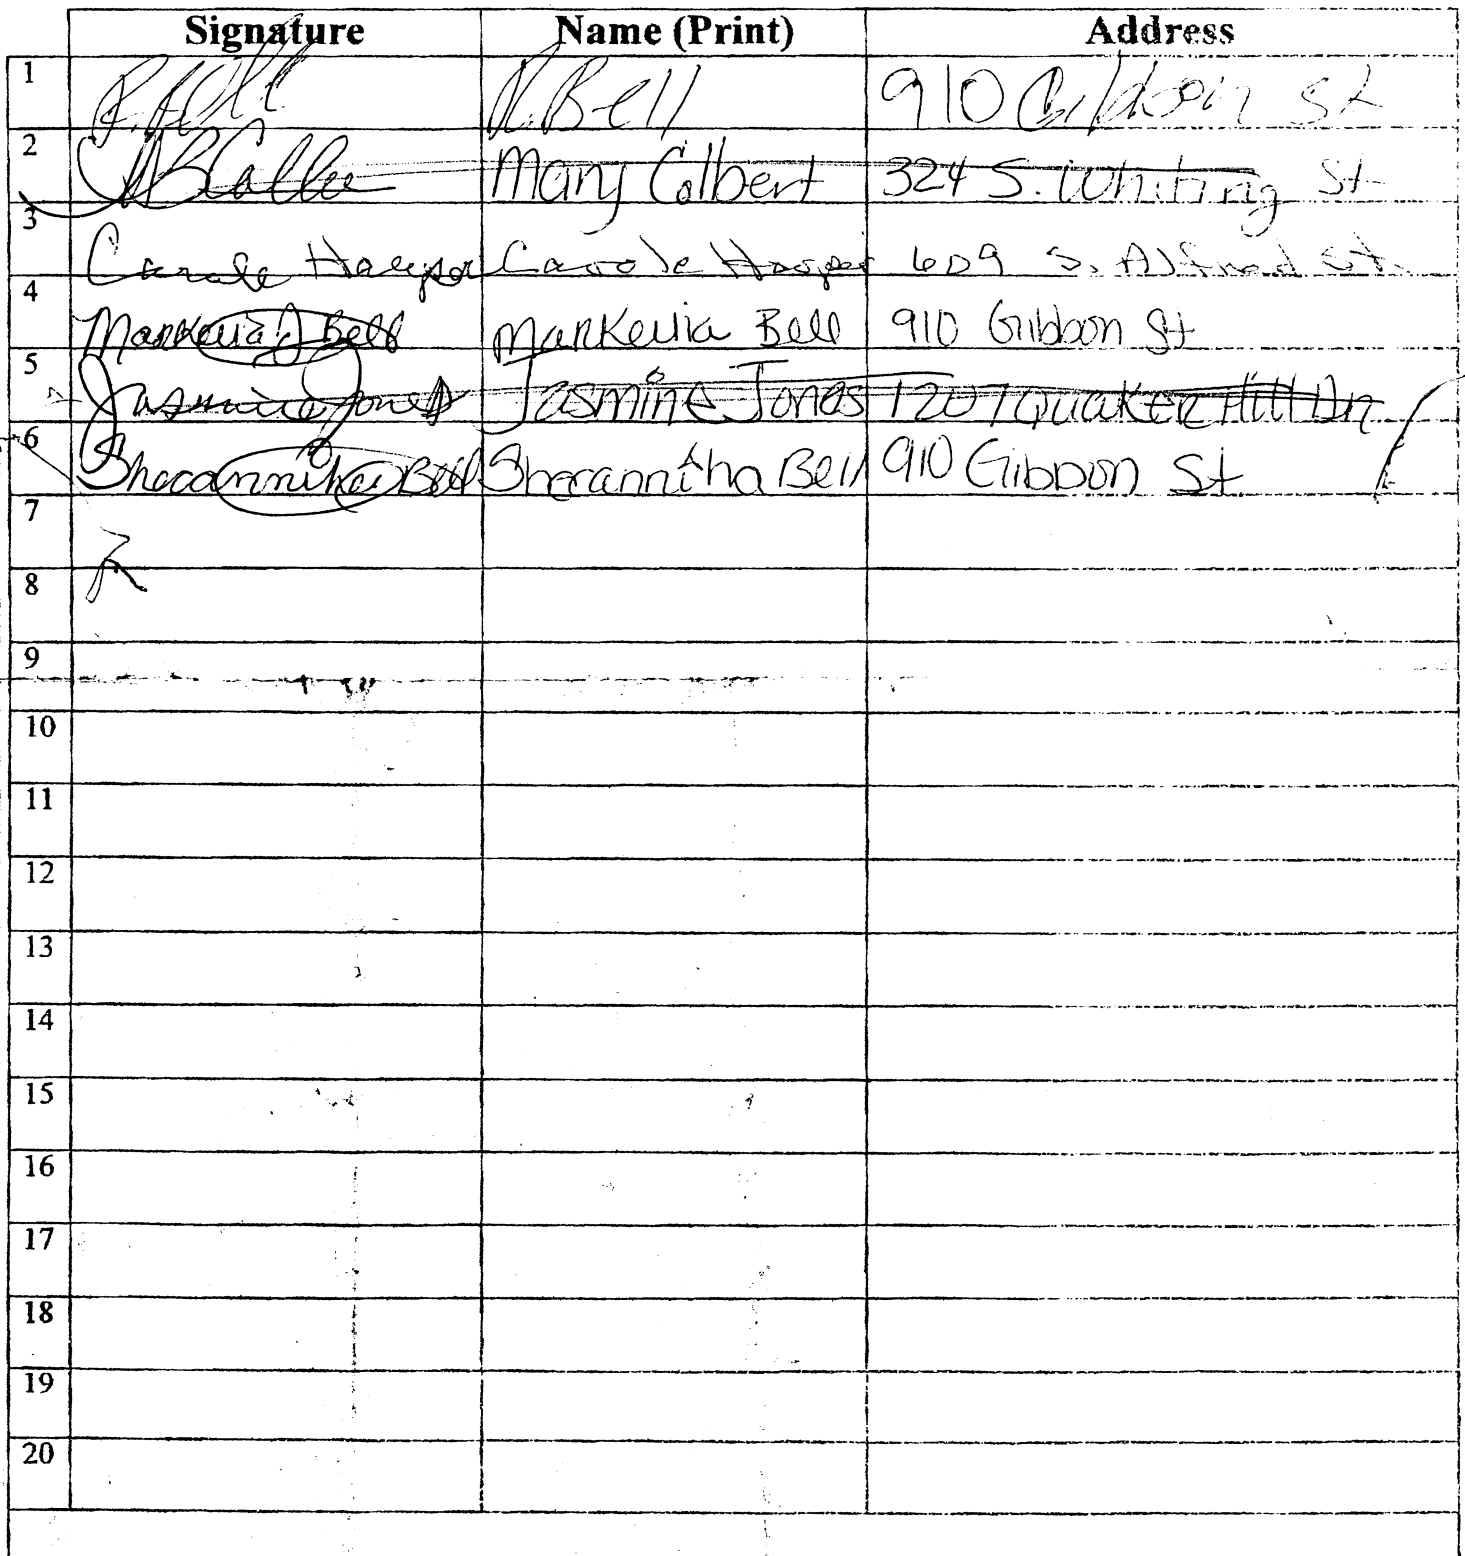 Signature Name (Print) Address
1 R. Bell R. Bell 910 Gibbon St
2 Mary Colbert 324 S. Whiting St
3 Carole Harper Carole Harper 609 S. Alfred St.
4 Markeuia J Bell Markeuia Bell 910 Gibbon St
5 Jasmine Jones Jasmine Jones 1207 Quaker Hill Dr
6 Bell Bell 910 Gibbon St
7
8
9
10
11
12
13
14
15
16
17
18
19
20